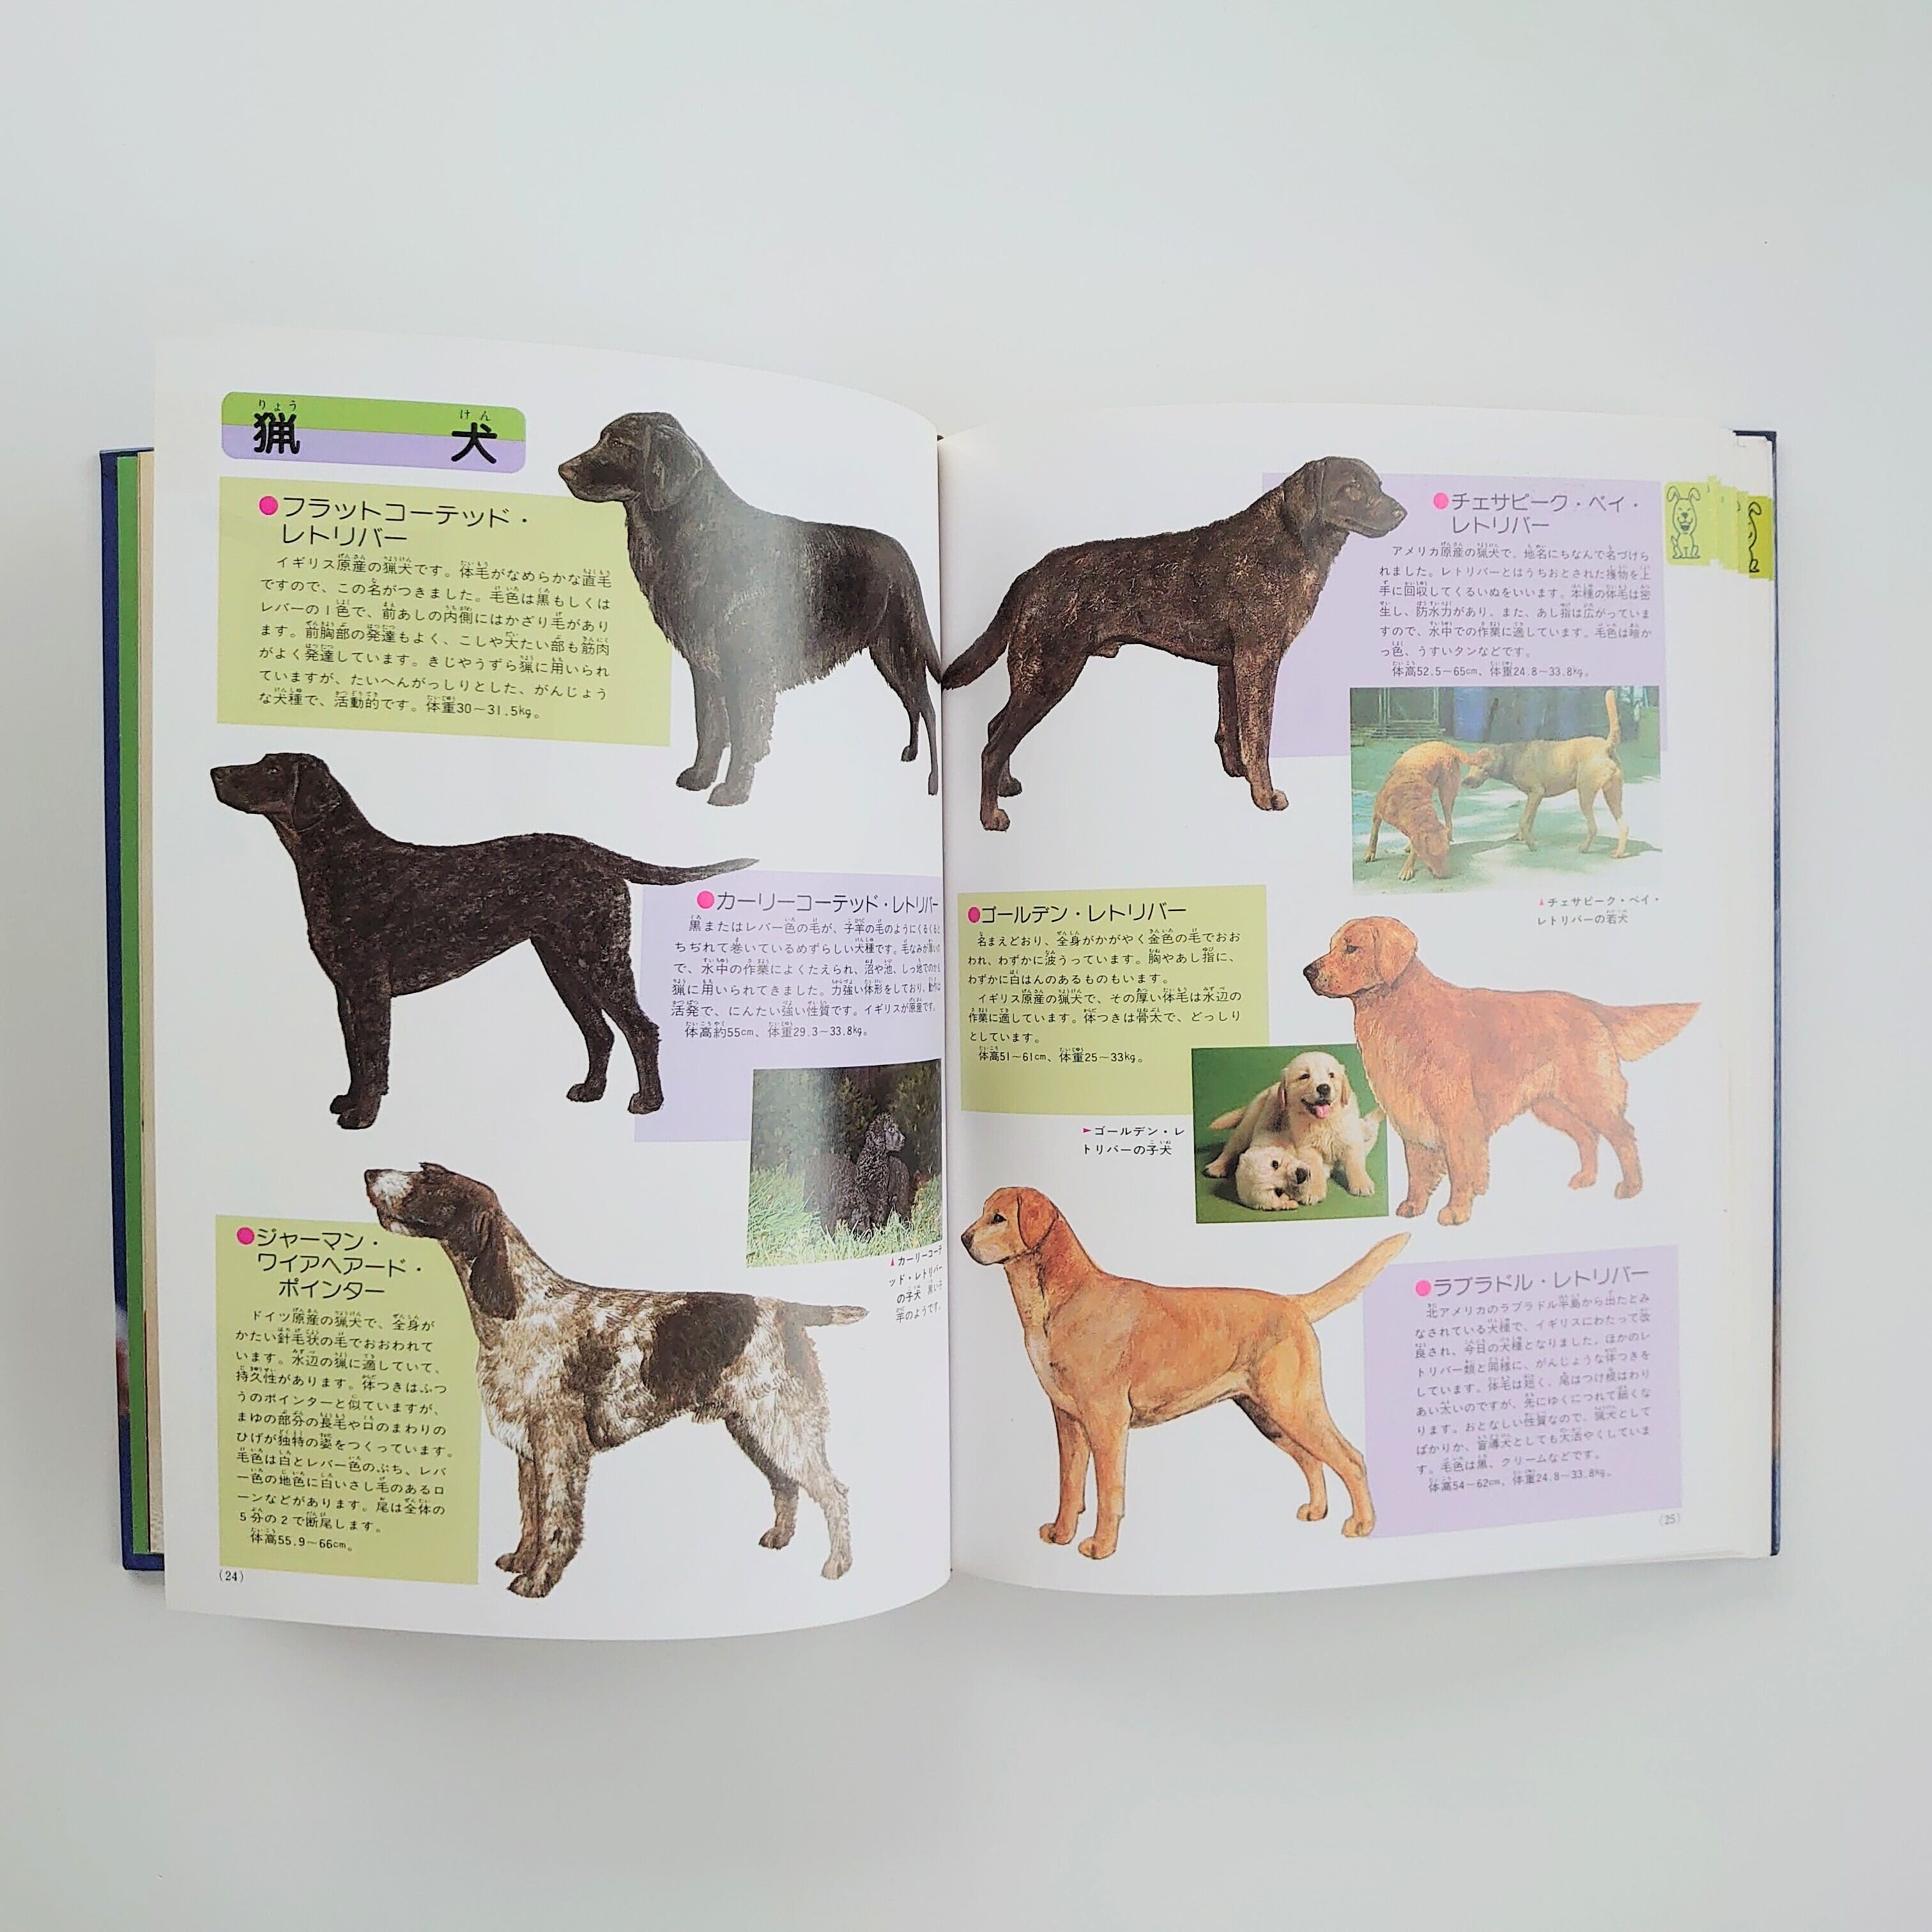 猟犬
フラットコーテッド・
レトリバー
イギリス原産の猟犬です。体毛がなめらかな直毛
ですので、この名がつきました。毛色は黒もしくは
レバーの1色で、前あしの内側にはかざり毛があり
ます。前胸部の発達もよく、こしや大たい部も筋肉
がよく発達しています。きじやうずら猟に用いられ
ていますが、たいへんがっしりとした、がんじょう
な犬種で、活動的です。体重30～31.5kg。
カーリーコーテッド・レトリバー
黒またはレバー色の毛が、子羊の毛のようにくるくると
ちぢれて巻いているめずらしい犬種です。毛なみが厚いの
で、水中の作業によくたえられ、沼や池、しっ地での
猟に用いられてきました。力強い体形をしており、動作は
活発で、にんたい強い性質です。イギリスが原産です。
体高約55cm、体重29.3～33.8kg。
カーリーコーテ
ッド・レトリバー
の子犬
羊のようです。
ジャーマン・
ワイアヘアード・
ポインター
ドイツ原産の猟犬で、全身が
かたい針毛状の毛でおおわれて
います。水辺の猟に適していて、
持久性があります。体つきはふつ
うのポインターと似ていますが、
まゆの部分の長毛や口のまわりの
ひげが独特の姿をつくっています。
毛色は白とレバー色のぶち、レバ
ー色の地色に白いさし毛のあるロ
ーンなどがあります。尾は全体の
5分の2で断尾します。
体高55.9～66cm。
(24)
チェサピーク・ベイ・
レトリバー
アメリカ原産の猟犬で、地名にちなんで名づけら
れました。レトリバーとはうちおとされた獲物を上
手に回収してくるいぬをいいます。本種の体毛は密
生し、防水力があり、また、あし指は広がっていま
すので、水中での作業に適しています。毛色は暗か
っ色、うすいタンなどです。
体高52.5～65cm、体重24.8～33.8kg。
チェサピーク・ベイ・
レトリバーの若犬
ゴールデン・レトリバー
名まえどおり、全身がかがやく金色の毛でおお
われ、わずかに波うっています。胸やあし指に、
わずかに白はんのあるものもいます。
イギリス原産の猟犬で、その厚い体毛は水辺の
作業に適しています。体つきは骨太で、どっしり
としています。
体高51～61cm、体重25～33kg。
ゴールデン・レ
トリバーの子犬
ラブラドル・レトリバー
北アメリカのラブラドル半島から出たとみ
なされている犬種で、イギリスにわたって改
良され、今日の犬種となりました。ほかのレ
トリバー類と同様に、がんじょうな体つきを
しています。体毛は短く、尾はつけ根はわり
あい太いのですが、先にゆくにつれて細くな
ります。おとなしい性質なので、猟犬として
ばかりか、盲導犬としても大活やくしていま
す。毛色は黒、クリームなどです。
体高54～62cm、体重24.8～33.8kg。
(25)